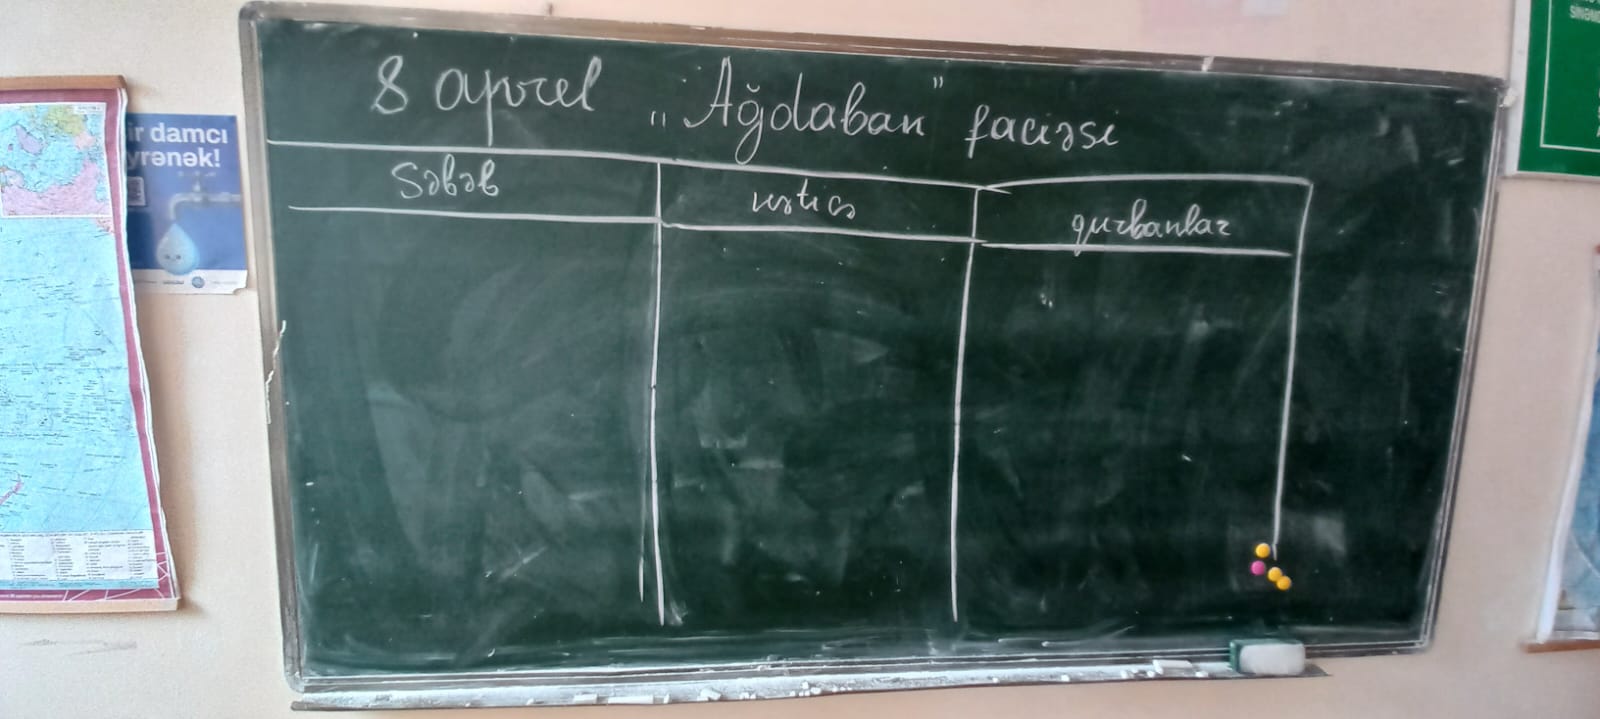 8 aprel „Ağdaban" faciəsi
Səbəb
nəticə
qurbanlar
ir damcı
yrənək!